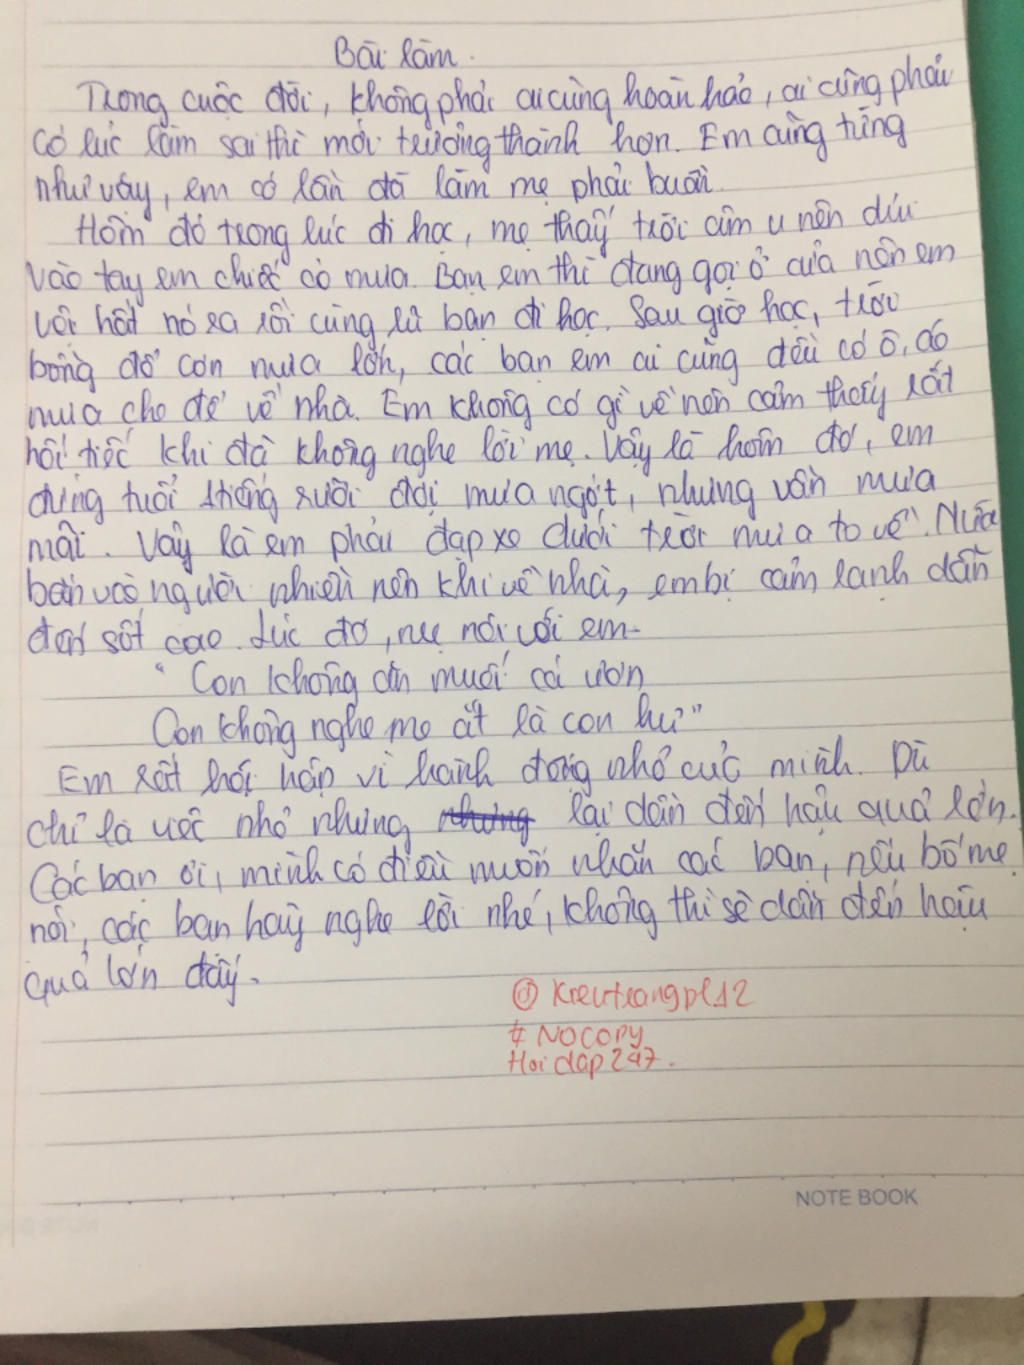 Bài làm.
Trong cuộc đời, không phải ai cũng hoàn hảo, ai cũng phải
có lúc làm sai thì mới trưởng thành hơn. Em cũng từng
như vậy, em có lần đã làm mẹ phải buồn.
Hôm đó trong lúc đi học, mẹ thấy trời âm u nên dúi
vào tay em chiếc áo mưa. Bạn em thì đang gọi ở cửa nên em
vội hất nó ra rồi cùng lũ bạn đi học. Sau giờ học, trời
bỗng đổ cơn mưa lớn, các bạn em ai cũng đều có ô, áo
mưa che để về nhà. Em không có gì về nên cảm thấy rất
hối tiếc khi đã không nghe lời mẹ. Vậy là hôm đó, em
đứng đợi mưa ngớt, nhưng vẫn mưa
mãi. Vậy là em phải đạp xe dưới trời mưa to về. Nước
bắn vào người nhiều nên khi về nhà, em bị cảm lạnh dẫn
đến sốt cao. Lúc đó, mẹ nói với em.
"Con không ăn muối cá ươn
Con không nghe mẹ ắt là con hư"
Em rất hối hận vì hành động nhỏ của mình. Dù
chỉ là việc nhỏ nhưng nhưng lại dẫn đến hậu quả lớn.
Các bạn ơi, mình có điều muốn nhắn các bạn, nếu bố mẹ
nói, các bạn hãy nghe lời nhé, không thì sẽ dẫn đến hậu
quả lớn đấy.
@ Kreutrangpl12
# NOCOPY
Hoidap247.
NOTE BOOK